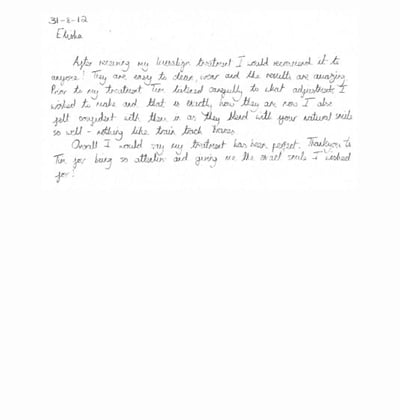 31-8-12
Elisha
After receiving my Invisalign treatment I would recommend it to
anyone! They are easy to clean, wear and the results are amazing
Prior to my treatment Tim listened carefully to what adjustments I
wished to make and that is exactly how they are now I also
felt confident with them in as they blend with your natural smile
so well - nothing like train track braces.
Overall I would say my treatment has been perfect. Thankyou to
Tim for being so attentive and giving me the exact smile I wished
for!